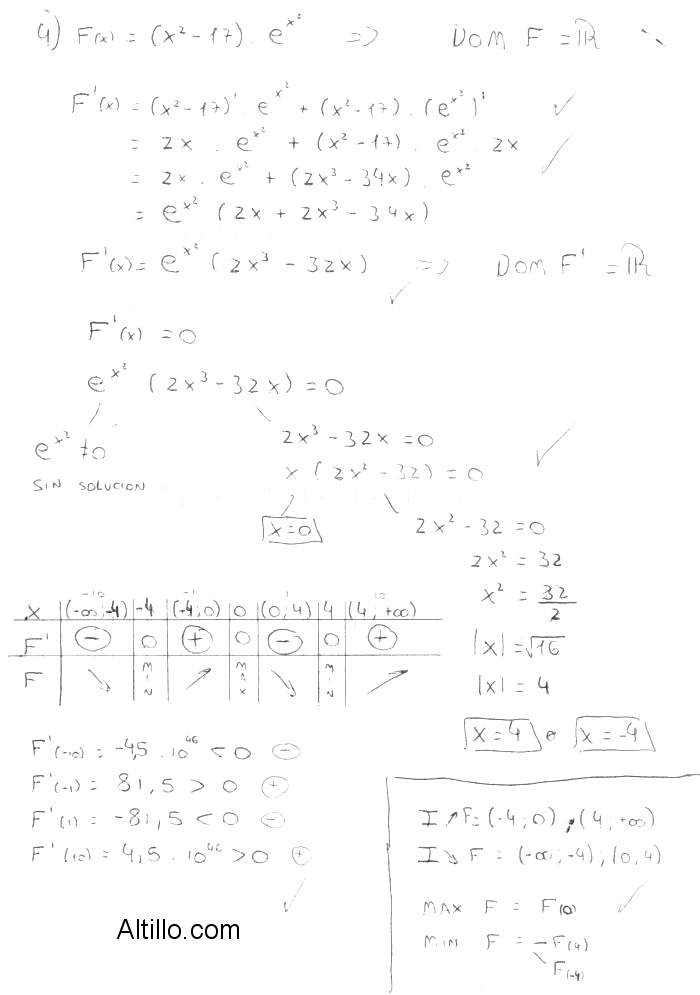 4) F(x) = (x²-17) . e^x² => DOM F = ℝ
F'(x) = (x²-17)' . e^x² + (x²-17) . (e^x²)' ✓
= 2x . e^x² + (x²-17) . e^x² . 2x
= 2x . e^x² + (2x³-34x) . e^x² ✓
= e^x² (2x + 2x³ - 34x)
F'(x) = e^x² (2x³ - 32x) => DOM F' = ℝ
✓
F'(x) = 0
e^x² (2x³-32x) = 0
e^x² ≠ 0
SIN SOLUCION
2x³-32x = 0
x (2x²-32) = 0 ✓
x=0
2x²-32 = 0
2x² = 32
x² = 32/2
|x| = √16
|x| = 4
x=4 o x=-4
-10 -1 1 10
x | (-∞;-4) | -4 | (-4;0) | 0 | (0;4) | 4 | (4;+∞)
F' | - | 0 | + | 0 | - | 0 | +
F | ↘ | MIN | ↗ | MAX | ↘ | MIN | ↗
F'(-10) = -4,5 . 10^46 < 0 -
F'(-1) = 81,5 > 0 +
F'(1) = -81,5 < 0 -
F'(10) = 4,5 . 10^46 > 0 +
✓
I↗F = (-4;0) ; (4;+∞)
I↘F = (-∞;-4) ; (0,4)
MAX F = F(0) ✓
MIN F = -F(4)
F(-4)
Altillo.com